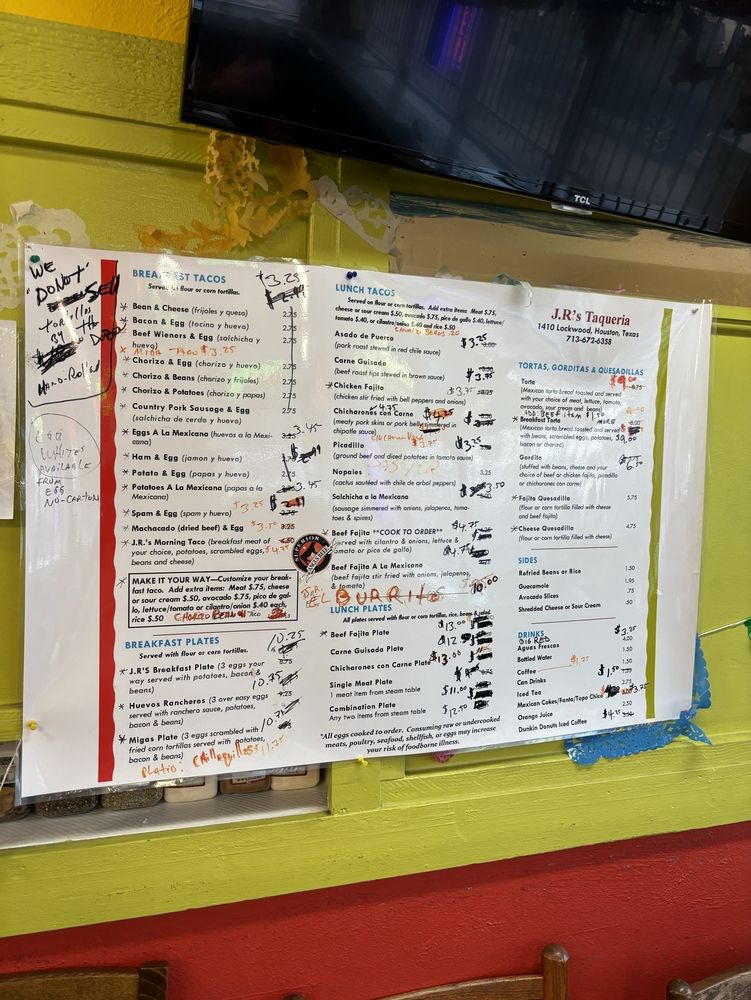 TCL
WE
"DONOT"
SELL
tortillas
By the
Dozen
Hand-Rolled
EGG
WHITES
AVAILABLE
FROM
EGG
NO-CARTON
BREAKFAST TACOS $3.25
Served on flour or corn tortillas.
* Bean & Cheese (frijoles y queso) 2.75
* Bacon & Egg (tocino y huevo) 2.75
Beef Wieners & Egg (salchicha y 2.75
huevo)
* MIGA Taco $3.25
* Chorizo & Egg (chorizo y huevo) 2.75
* Chorizo & Beans (chorizo y frijoles) 2.75
* Chorizo & Potatoes (chorizo y papas) 2.75
* Country Pork Sausage & Egg 2.75
(salchicha de cerdo y huevo)
* Eggs A La Mexicana (huevos a la Mexi- 3.45
cana)
* Ham & Egg (jamon y huevo)
* Potato & Egg (papas y huevo) 2.75
* Potatoes A La Mexicana (papas a la 3.45
Mexicana)
* Spam & Egg (spam y huevo) $3.25
* Machacado (dried beef) & Egg $3.50 3.25
* J.R.'s Morning Taco (breakfast meat of
your choice, potatoes, scrambled eggs, $4.75
beans and cheese)
SUPERIOR
* MAKE IT YOUR WAY—Customize your break-
fast taco. Add extra items: Meat $.75, cheese
or sour cream $.50, avocado $.75, pico de gal-
lo, lettuce/tomato or cilantro/onion $.40 each,
rice $.50 CHORIZO BEAN Taco
BREAKFAST PLATES 10.25
Served with flour or corn tortillas.
* J.R.'S Breakfast Plate (3 eggs your 8.75
way served with potatoes, bacon & 10.75
beans)
* Huevos Rancheros (3 over easy eggs
served with ranchero sauce, potatoes,
bacon & beans) 10.75
* Migas Plate (3 eggs scrambled with
fried corn tortillas served with potatoes,
bacon & beans)
Platio. Chillaquilles $11.75
LUNCH TACOS
Served on flour or corn tortillas. Add extra items: Meat $.75,
cheese or sour cream $.50, avocado $.75, pico de gallo $.40, lettuce/
tomato $.40, or cilantro/onion $.40 and rice $.50
Asado de Puerco $3.75
(pork stewed in red chile sauce)
Carne Guisada $3.75
(beef roast tips stewed in brown sauce)
* Chicken Fajita $3.75
(chicken stir fried with bell peppers and onions)
Chicharones con Carne 4.75
(meaty pork skins or pork belly simmered in
chipotle sauce)
Picadillo $3.75
(ground beef and diced potatoes in tomato sauce)
Nopales 3.25
(cactus sautéed with chile de arbol peppers)
Salchicha a la Mexicana $3.50
(sausage simmered with onions, jalapenos, toma-
toes & spices)
Beef Fajita **COOK TO ORDER** $4.75
(served with cilantro & onions, lettuce &
tomato or pico de gallo) $4.75
Beef Fajita A La Mexicana
(beef fajita stir fried with onions, jalapenos,
& tomato)
BURRITO 10.00
LUNCH PLATES
All plates served with flour or corn tortillas, rice, beans & salad
* Beef Fajita Plate $13.00
Carne Guisada Plate
Chicharones con Carne Plate $13.00
Single Meat Plate
1 meat item from steam table $11.00
Combination Plate
Any two items from steam table $12.50
*All eggs cooked to order. Consuming raw or undercooked
meats, poultry, seafood, shellfish, or eggs may increase
your risk of foodborne illness.
J.R's Taqueria
1410 Lockwood, Houston, Texas
713-672-6358
TORTAS, GORDITAS & QUESADILLAS
Torta $9.00
(Mexican torta bread toasted and served
with your choice of meat, lettuce, tomato,
avocado, sour cream and beans)
ADD BEEF item $1.50
MORE
* Breakfast Torta
(Mexican torta bread toasted and served
with beans, scrambled eggs, potatoes, $9.00
bacon or chorizo)
Gordita
(stuffed with beans, cheese and your 6.50
choice of beef or chicken fajita, picadillo
or chicharones con carne)
* Fajita Quesadilla 5.75
(flour or corn tortilla filled with cheese
and beef fajita)
* Cheese Quesadilla 4.75
(flour or corn tortilla filled with cheese)
SIDES
Refried Beans or Rice 1.50
Guacamole 1.95
Avocado Slices .75
Shredded Cheese or Sour Cream .50
DRINKS $3.25
BIG RED
Aguas Frescas 4.00
Bottled Water $1.75 1.50
Coffee $1.50
Can Drinks
Iced Tea 2.75
Mexican Cokes/Fanta/Topo Chico $3.75
Orange Juice 2.50
Dunkin Donuts Iced Coffee $4.25